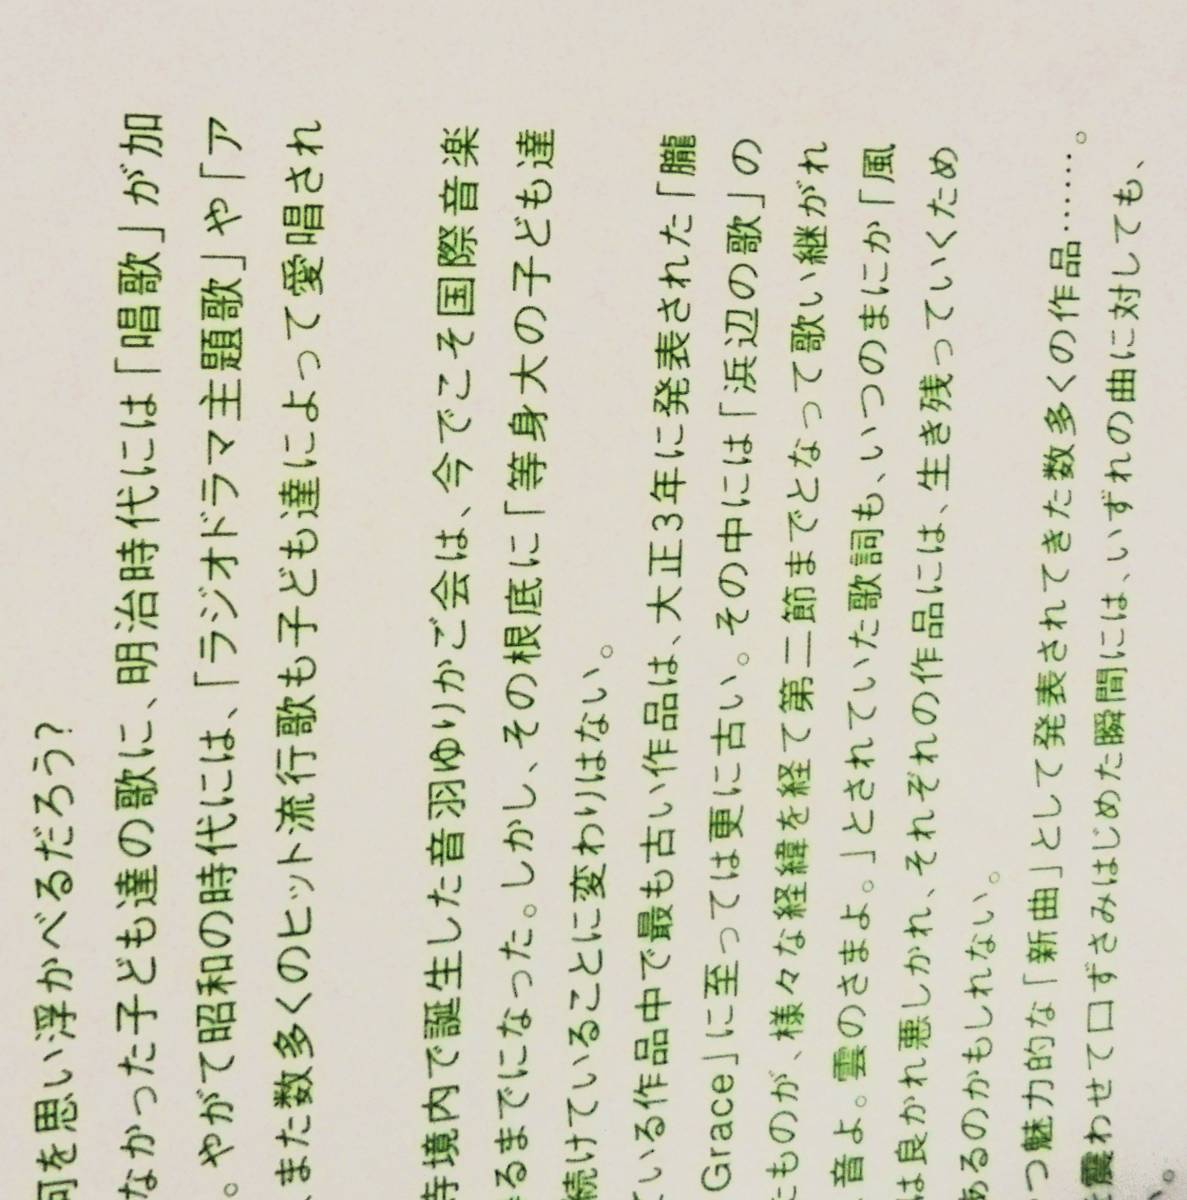 何を思い浮かべるだろう?
なかった子ども達の歌に、明治時代には「唱歌」が加
。やがて昭和の時代には、「ラジオドラマ主題歌」や「ア
、また数多くのヒット流行歌も子ども達によって愛唱され
寺境内で誕生した音羽ゆりかご会は、今でこそ国際音楽
るまでになった。しかし、その根底に「等身大の子ども達
続けていることに変わりはない。
ている作品中で最も古い作品は、大正3年に発表された「朧
Grace」に至っては更に古い。その中には「浜辺の歌」の
たものが、様々な経緯を経て第二節までとなって歌い継がれ
音よ。雲のさまよ。」とされていた歌詞も、いつのまにか「風
は良かれ悪しかれ、それぞれの作品には、生き残っていくため
あるのかもしれない。
つ魅力的な「新曲」として発表されてきた数多くの作品……。
震わせて口ずさみはじめた瞬間には、いずれの曲に対しても、
。